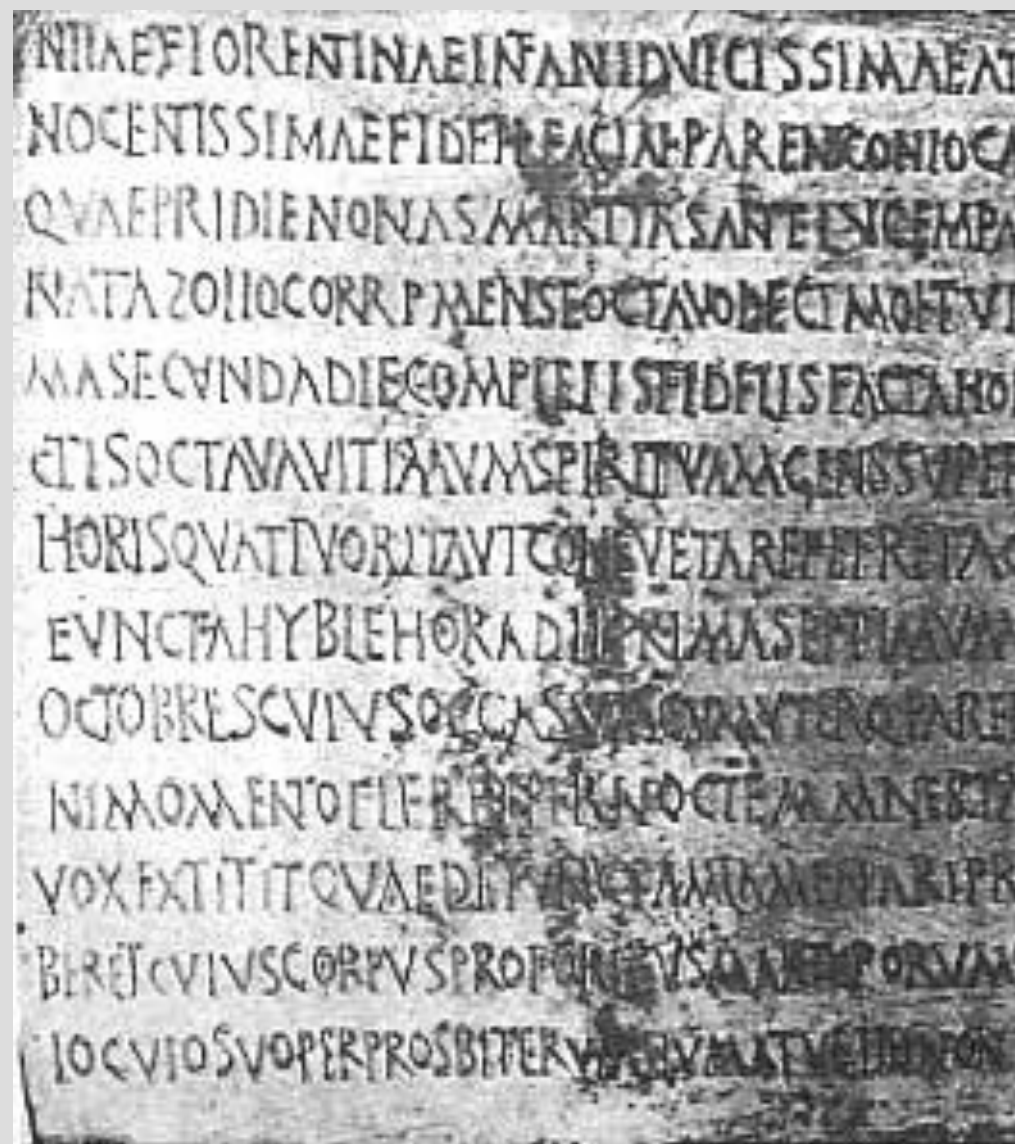 NTIAE FLORENTINAE INFANTI DVLCISSIMAE AT
NOCENTISSIMAE FIDELI FACTAE PARENS CONLOCA
QVAE PRIDIE NONAS MARTIAS ANTE LVCEM PA
NATA ZOILO CORR P MENSE OCTAVO DECIMO ET VI
MA SECVNDA DIE COMPLETIS FIDELIS FACTA HO
CTIS OCTAVA VLTIMVM SPIRITVM AGENS SVPER
HORIS QVATTVOR ITA VT CONSVETA REPETERET AC
FVNCTA HYBLE HORA DIEI PRIMA SEPTIMVM
OCTOBRES CVIVS OCCASVM CVM VTERQ PARE
NI MOMENTO FLERET PER NOCTEM
VOX EXTITIT QVAE DEFVNCTAM LAMENTARI PR
BERET CVIVS CORPVS PRO FORIBVS
LOCVLO SVO PER PROSBITERVM HVMATV